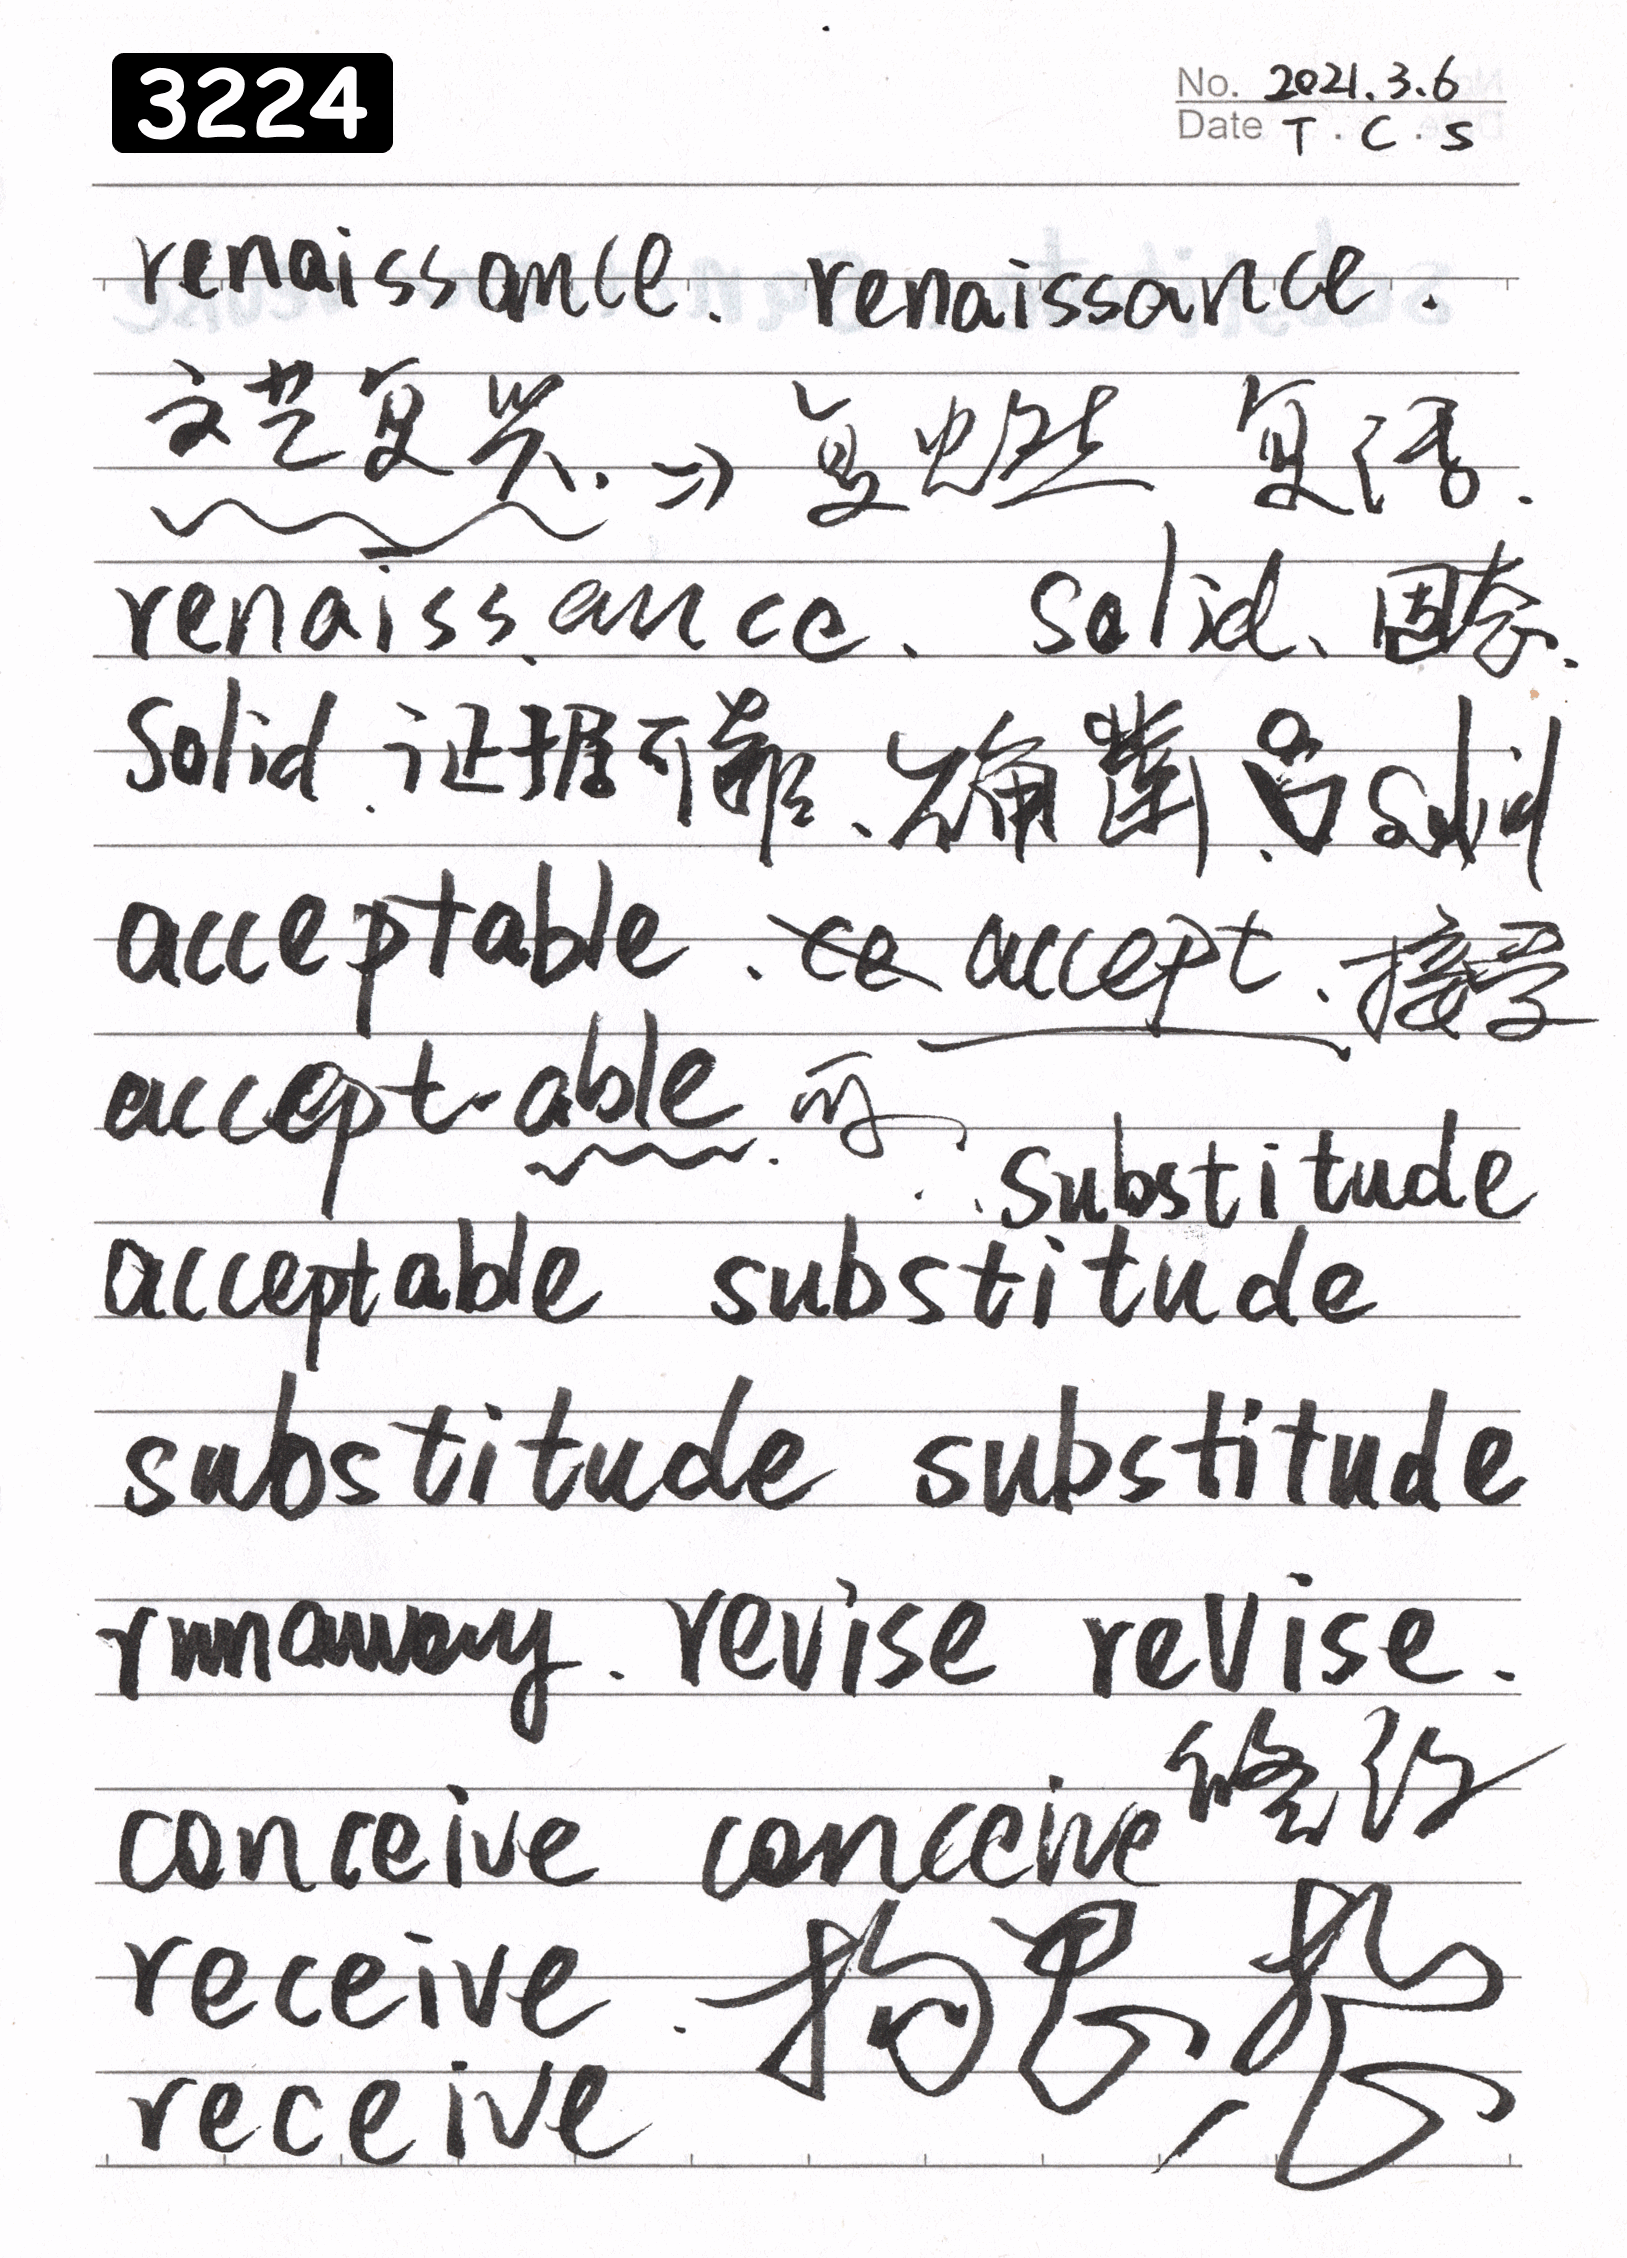 3224
No. 2021.3.6
Date T.C.S
renaissance. renaissance.
文艺复兴. => 复燃 复活.
renaissance. solid、固态.
Solid. 证据可靠、确凿. solid
acceptable. ce accept. 接受
accept-able. 可
substitude
acceptable substitude
substitude substitude
runaway. revise revise.
修改
conceive conceive
receive. 构思, 想
receive